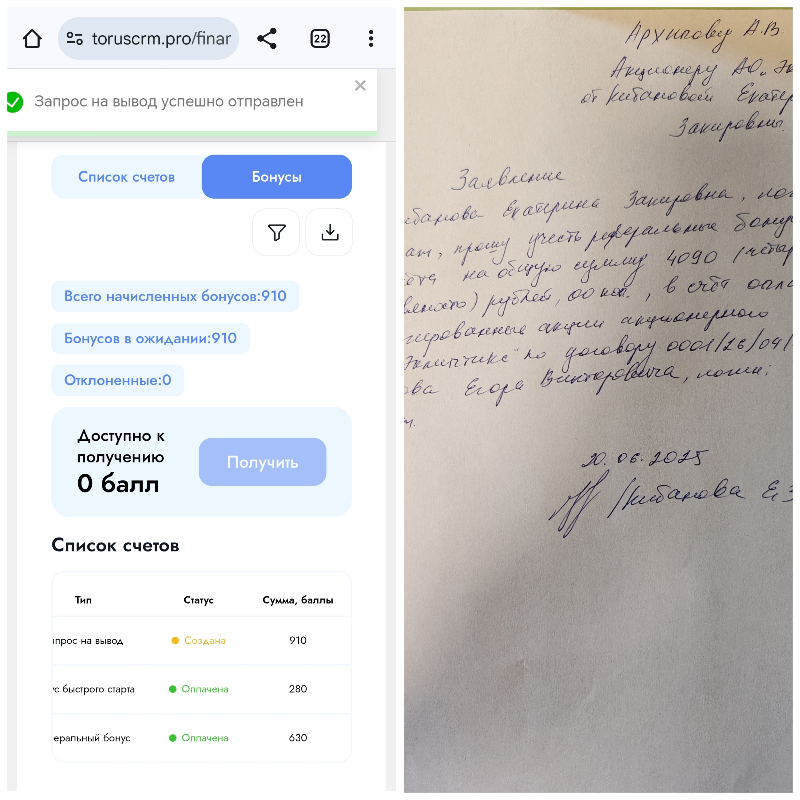 toruscrm.pro/finar
22
Запрос на вывод успешно отправлен
Список счетов
Бонусы
Всего начисленных бонусов:910
Бонусов в ожидании:910
Отклоненные:0
Доступно к
получению
0 балл
Получить
Список счетов
Тип Статус Сумма, баллы
прос на вывод Создана 910
с быстрого старта Оплачена 280
еральный бонус Оплачена 630
Архипову А.В
Акционеру АО
от Кибановой Екатер
Закировны.
Заявление
ибанова Екатерина Закировна,
прошу учесть реферальные бону
на общую сумму 4090 (четыр
вяносто) рублей, 00 коп., в счёт опла
ированные акции акционерного
по договору 0001/26/04/
ова Егора Викторовича, логин:
20.06.2025
/Кибанова Е,З